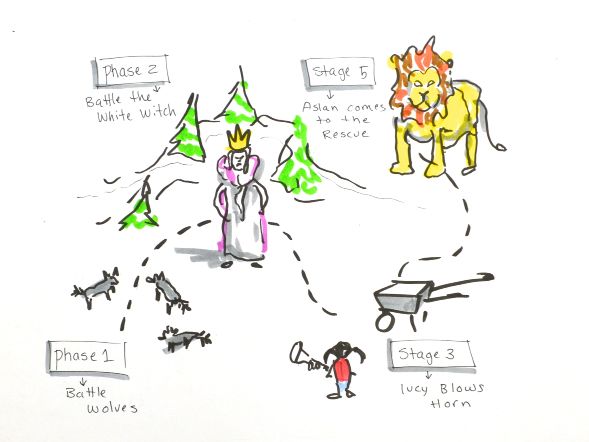 Phase 2
Battle the
White Witch
Stage 5
Aslan comes
to the
Rescue
Phase 1
Battle
Wolves
Stage 3
Lucy Blows
Horn